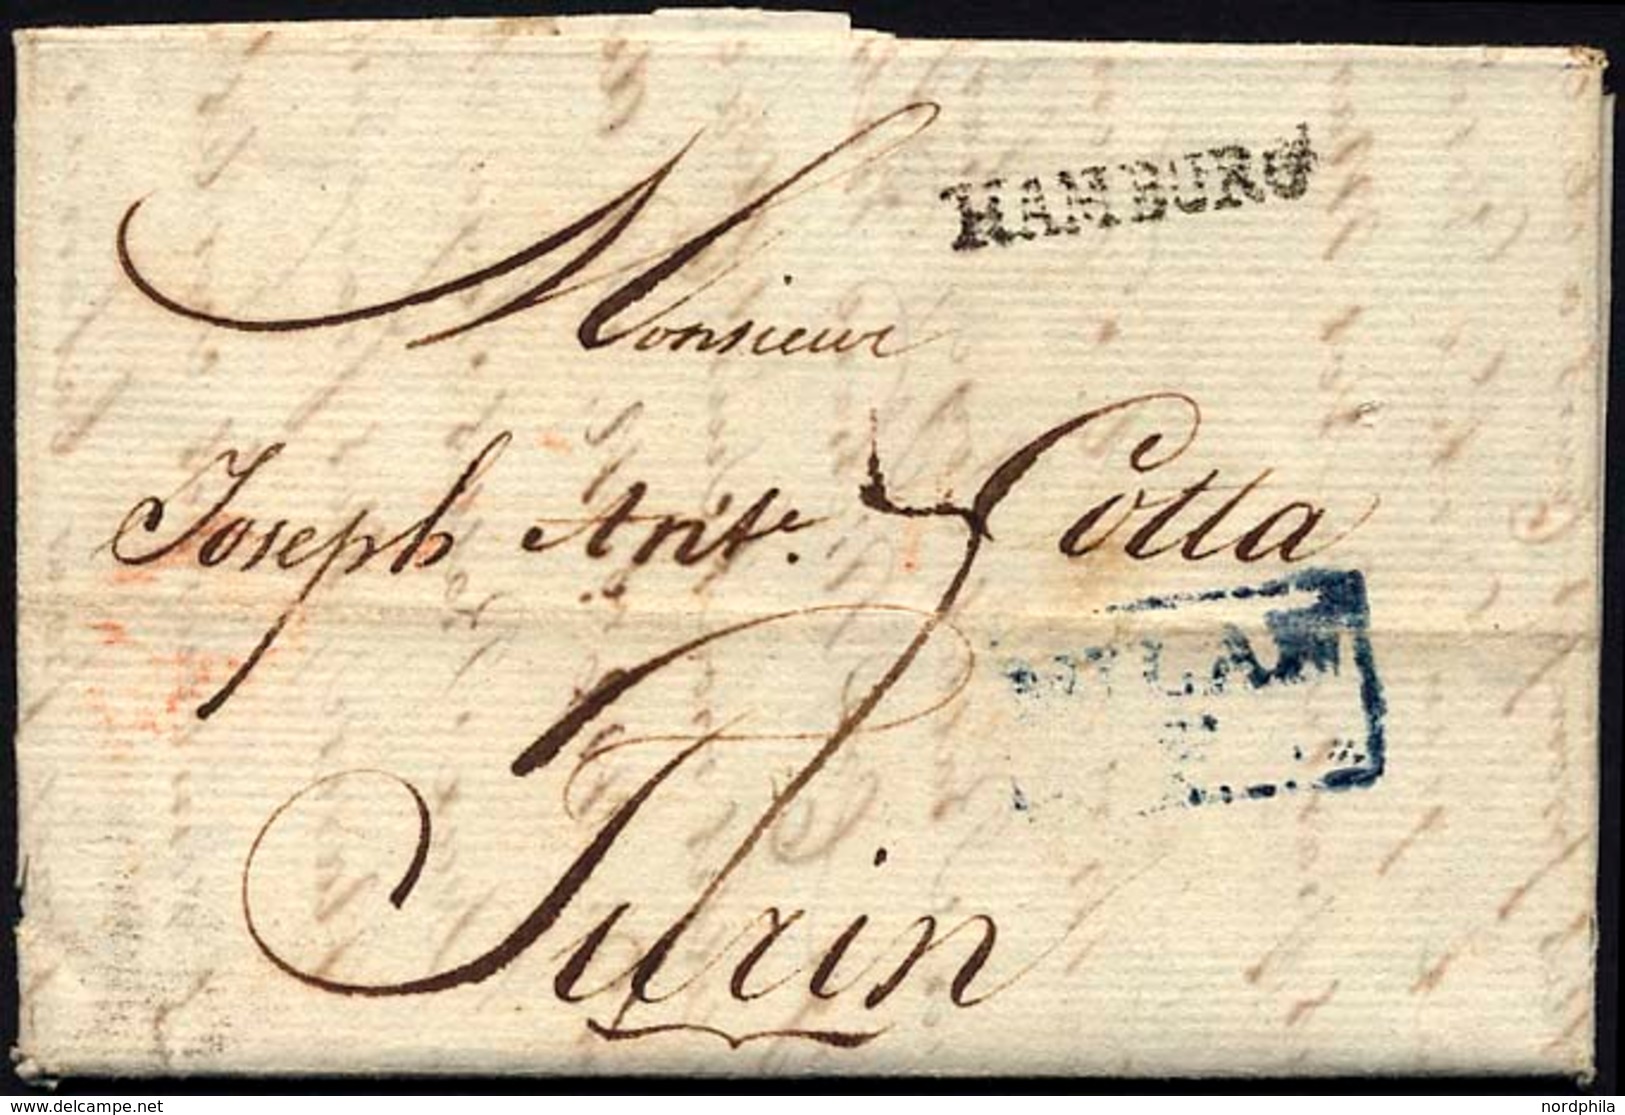 HAMBURG
Monsieur
Joseph Ant.e Cotta
MILAN
Turin
© delcampe.net
nordphila